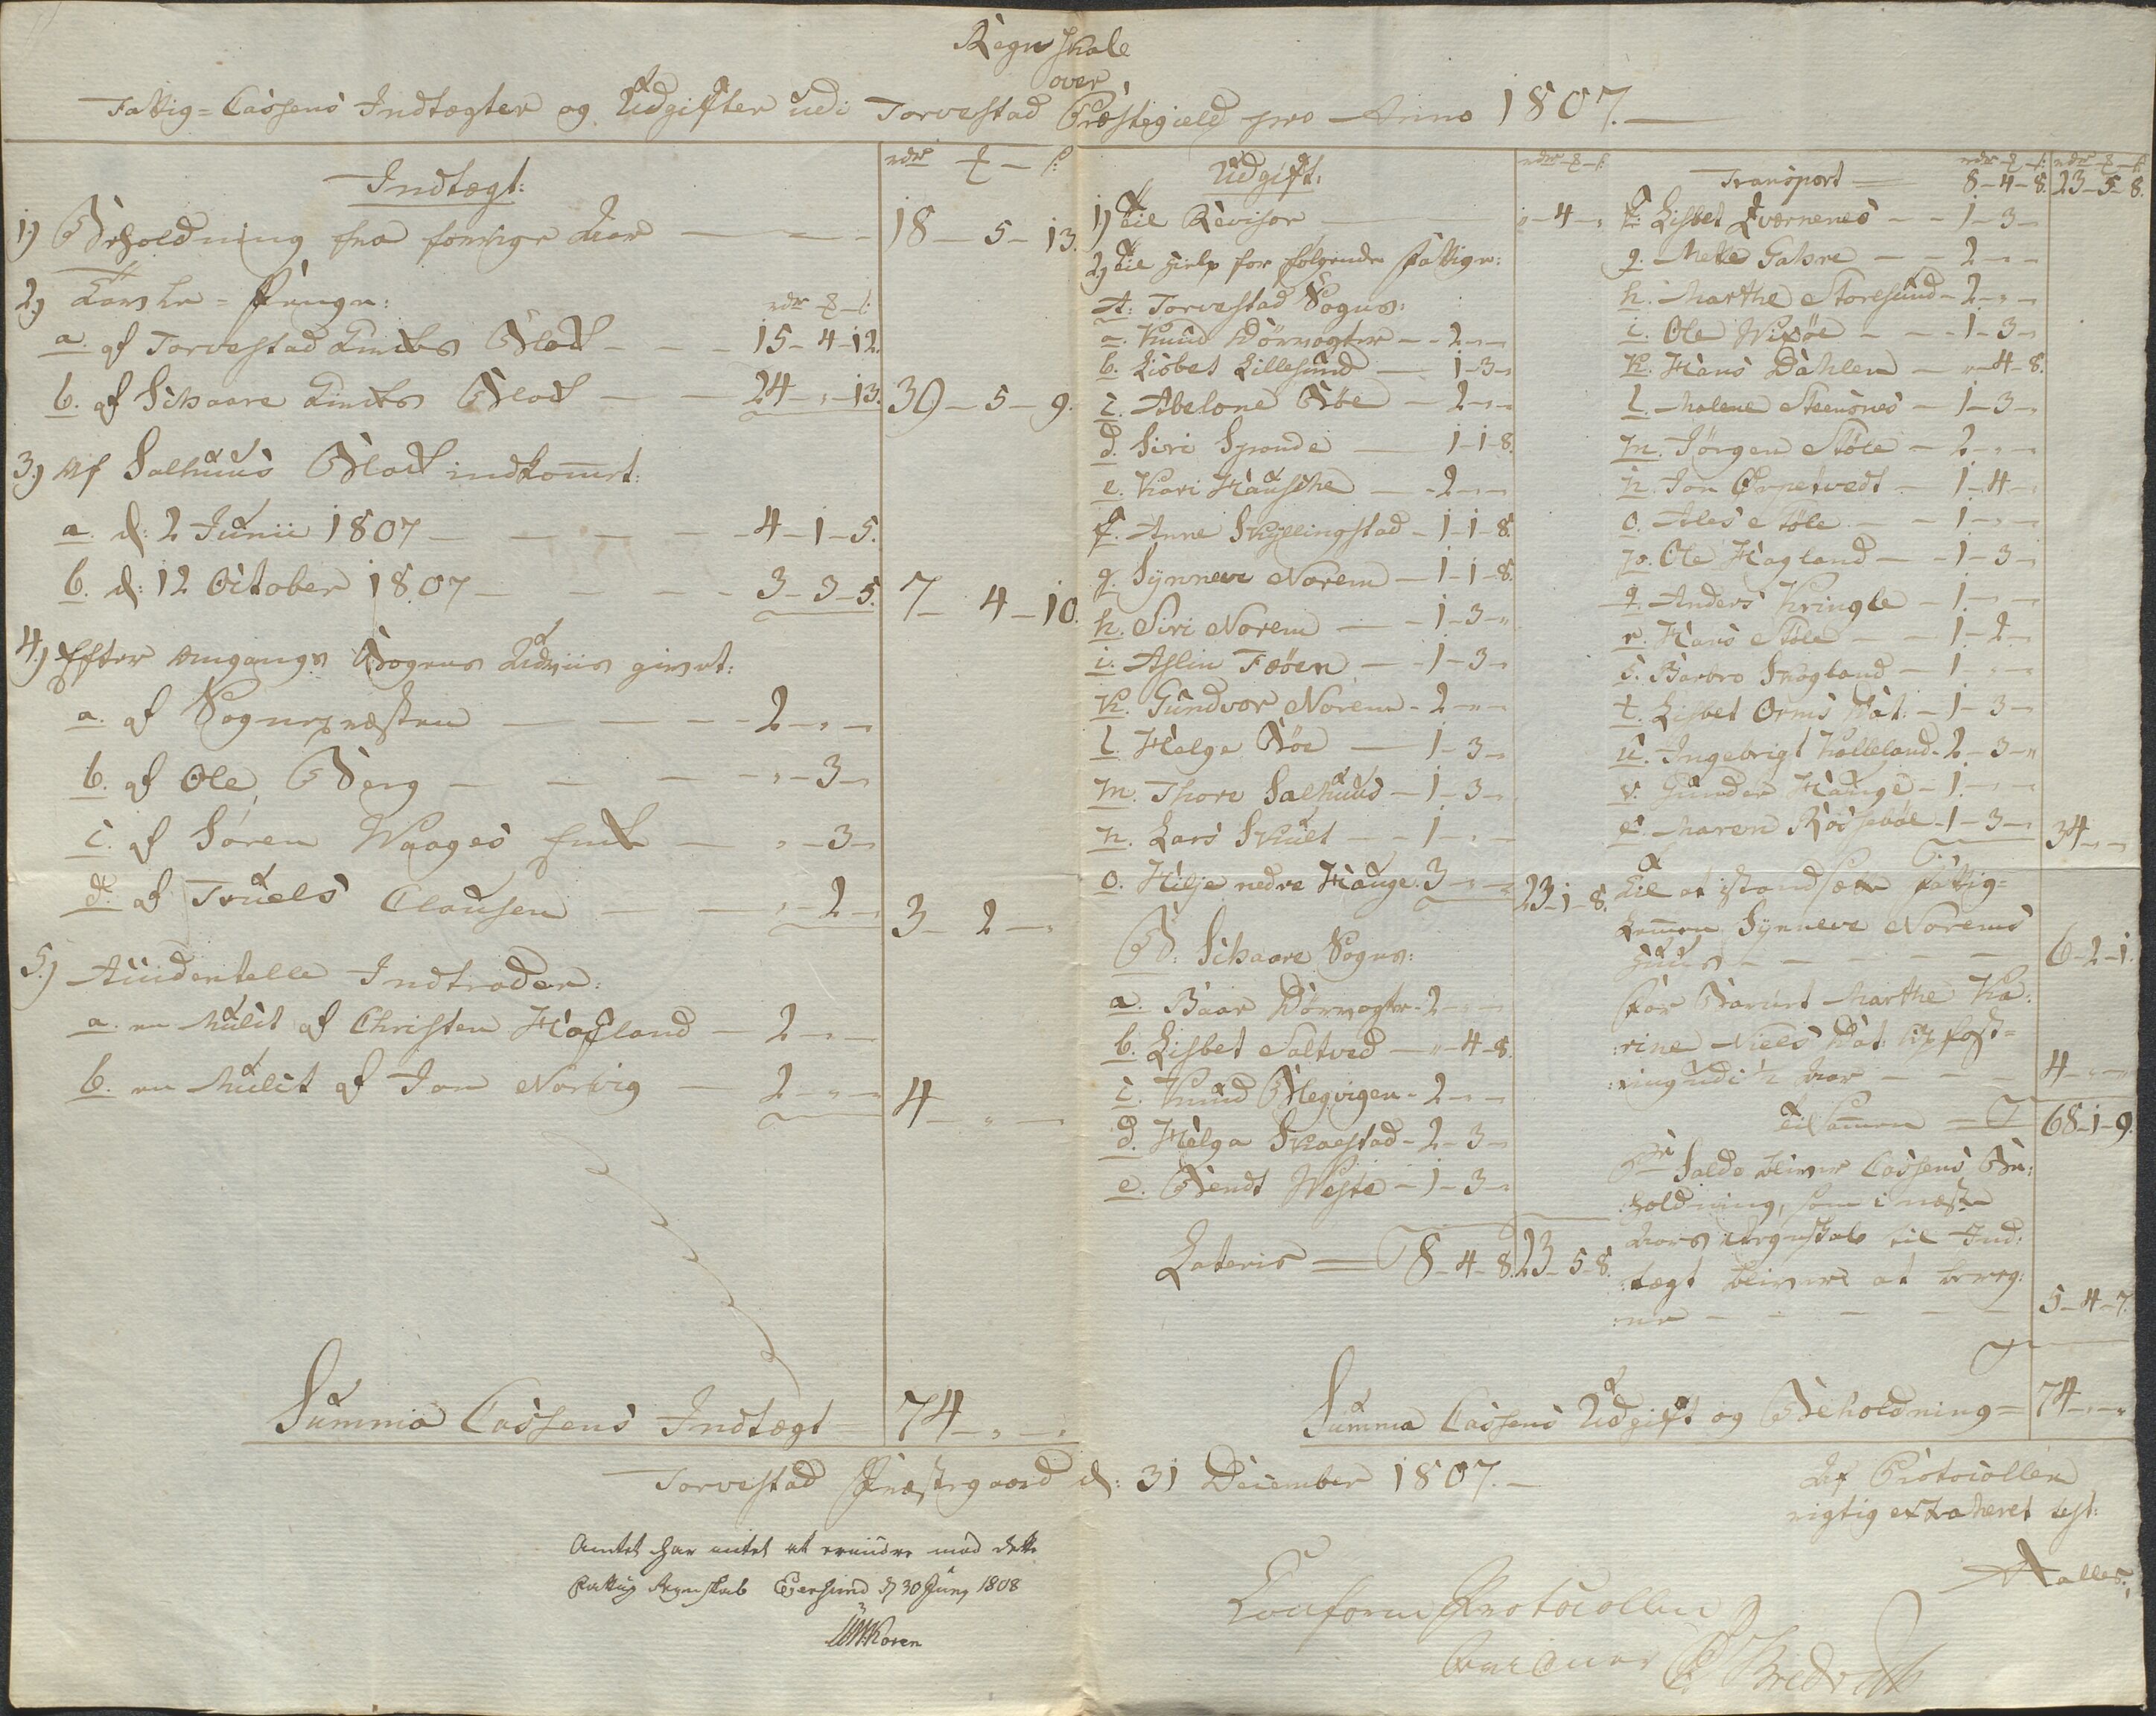 Regnskab
over
Fattig=Cassens Indtægter og Udgifter udi Torvestad Præstegield pro Anno 1807.
Indtægt:
rdr ℔ - s:
1) Beholdning fra forrige Aar - - - 18 - 5 - 13.
2) Tavle=Penge:
rdr ℔ - s:
a. af Torvestad Kirkes Blok - - - 15 - 4 - 12.
b. af Schaare Kirkes Blok - - 24 - " - 13. 39 - 5 - 9.
3.) Af Salhuus Blok indkomt:
a. d: 2 Junii 1807 - - - - - 4 - 1 - 5.
b. d: 12 October 1807 - - - - 3 - 3 - 5. 7 - 4 - 10.
4.) Efter Omgangs Bogens Udviis givet:
a. af Sognepræsten - - - - 2 - " - "
b. af Ole Berg - - - - " - 3 - "
c. af Søren Waages - " - 3 - "
d. af Truels Clausen - - " - 2 - " 3 - 2 - "
5.) Accidentelle Indtræder:
a. en Mulct af Christen Hafland - 2 - " - "
b. en Mulct af Jon Norvig - 2 - " - " 4 - " - "
Summa Cassens Indtægt 74 - " - "
Udgift:
rdr ℔ - s:
1) Til Revisor - - " - 4 - "
2) Til Hielp for følgende Fattige:
A: Torvestad Sogn:
a. Knud Dörvogter - - 2 - " - "
b. Lisbet Lillesund - 1 - 3 - "
c. Abelone Böe - 2 - " - "
d. Siri Sponde - 1 - 1 - 8.
e. Kari Hausche - - 2 - " - "
f. Anne Skyllingstad - 1 - 1 - 8.
g. Synneve Norem - 1 - 1 - 8.
h. Siri Norem - - 1 - 3 - "
i. Aslin Feöen - - 1 - 3 - "
k. Gundvor Norem - 2 - " - "
l. Helge Böe - 1 - 3 - "
m. Thore Salhuus - 1 - 3 - "
n. Lars Skult - - 1 - " - "
o. Hilje nedre Hauge. 3 - " - " 23 - 1 - 8.
B: Schaare Sogn:
a. Baar Dörvogter - 2 - " - "
b. Lisbet Saltved - " - 4 - 8.
c. Knud Blegvigen - 2 - " - "
d. Helga Skaestad - 2 - 3 - "
e. Bendt Weste - 1 - 3 - "
Lateris = 8 - 4 - 8. 23 - 5 - 8.
rdr ℔ - s: rdr ℔ - s:
Transport = 8 - 4 - 8. 23 - 5 - 8.
f. Lisbet Qværnenes - - 1 - 3 - "
g. Mette Gahre - - 2 - " - "
h. Marthe Storesund - 2 - " - "
i. Ole Wixöe - - 1 - 3 - "
k. Hans Dahlen - " - 4 - 8.
l. Malene Steensnes - 1 - 3 - "
m. Jörgen Stöle - 2 - " - "
n. Jon Ørpetvedt - 1 - 4 - "
o. Ales Stöle - - 1 - " - "
p. Ole Hagland - - 1 - 3 - "
q. Anders Kringle - 1 - " - "
r. Hans Stöle - - 1 - 2 - "
s. Barbro Skogland - 1 - " - "
t. Lisbet Orms Dat: - 1 - 3 - "
u. Ingebrigt Kolleland - 2 - 3 - "
v. Gunder Hauge - 1 - " - "
x. Maren Rosseböe - 1 - 3 - " 34 - " - "
Til at istandsætte Fattig=
Lemmen Synneve Norems
Huus - - - - - 6 - 2 - 1.
For Barnet Marthe Ka:
:rine Niels Dat: Opfost=
:ring udi ½ Aar - - - 4 - " - "
Tilsamen = 68 - 1 - 9.
pr Saldo bliver Cassens Be:
:holdning, som i næste
Aars Regnskab til Ind:
:tægt bliver at bereg:
:ne - - - - - 5 - 4 - 7.
Summa Cassens Udgift og Beholdning = 74 - " - "
Torvestad Præstegaard d: 31 December 1807. -
Af Protocollen
rigtig extraheret test:
Aalles.
Amtet har intet at erindre mod dette
Fattig Regnskab Egersund d 30 Juny 1808
UWKoren
Conform Protocollen
P Bredrup